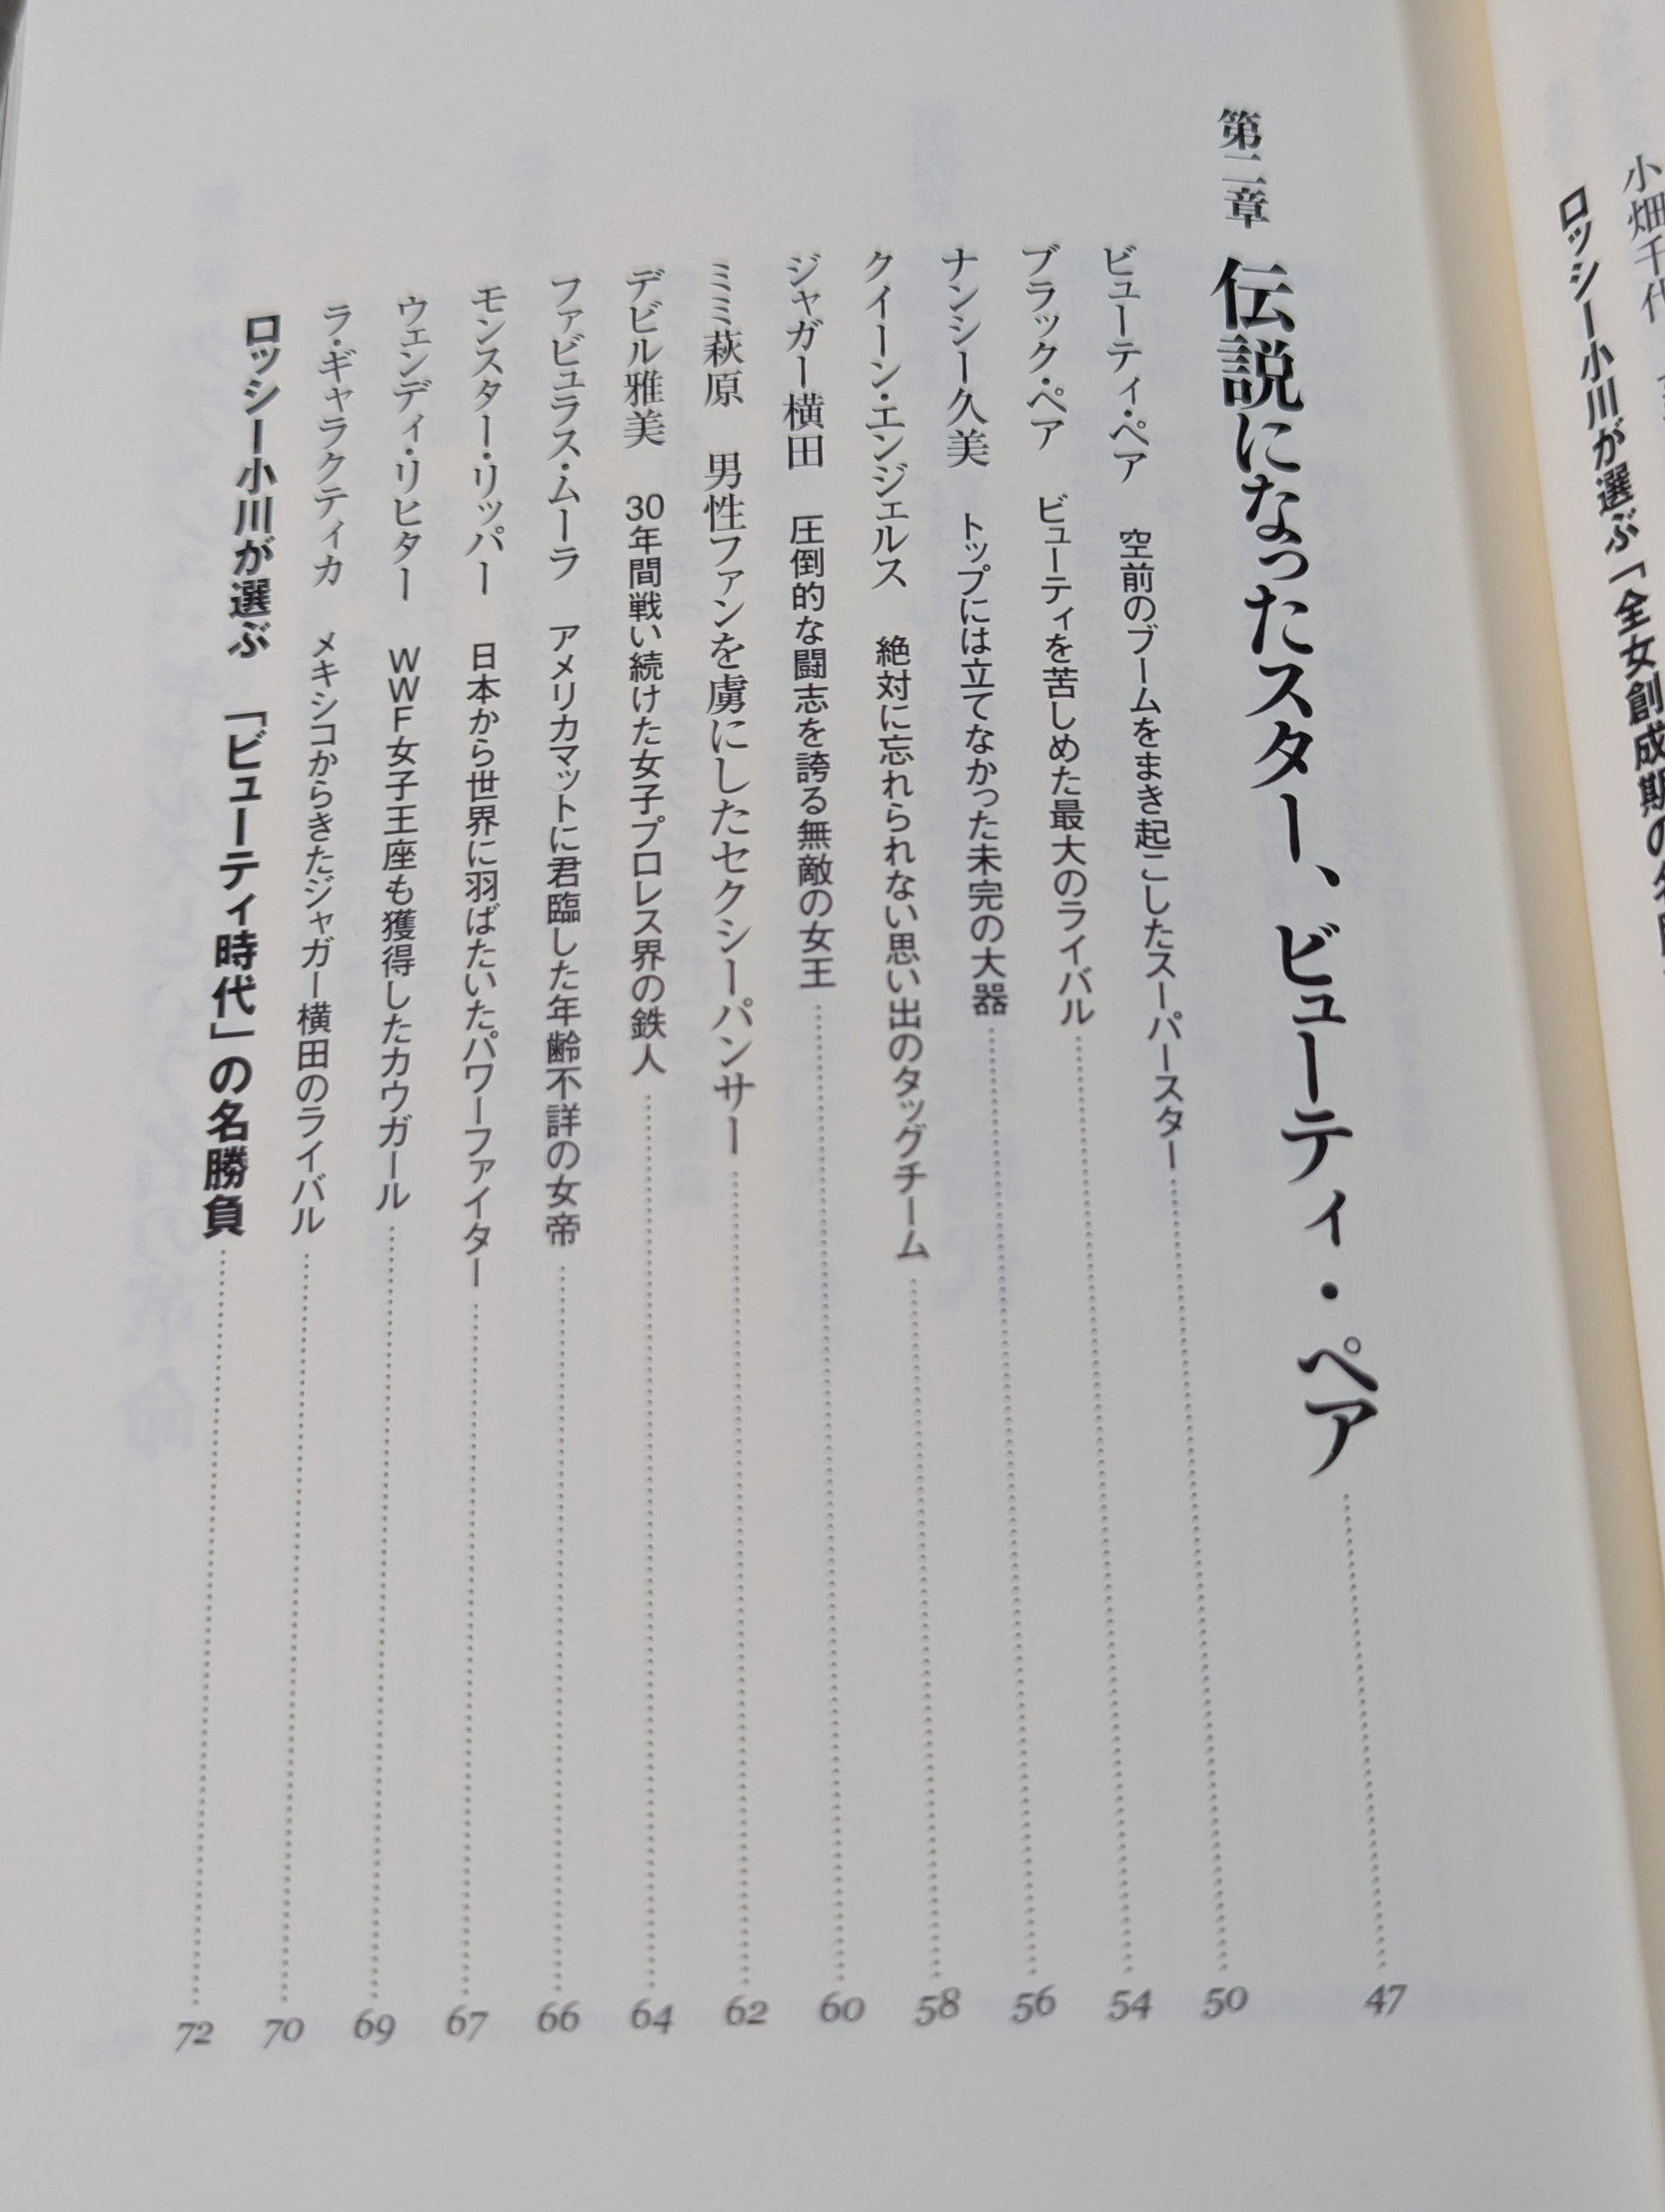 小畑千代
ロッシー小川が選ぶ「全女創成期の名
第二章 伝説になったスター、ビューティ・ペア 47
ビューティ・ペア 空前のブームをまき起こしたスーパースター 50
ブラック・ペア ビューティを苦しめた最大のライバル 54
ナンシー久美 トップには立てなかった未完の大器 56
クイーン・エンジェルス 絶対に忘れられない思い出のタッグチーム 58
ジャガー横田 圧倒的な闘志を誇る無敵の女王 60
ミミ萩原 男性ファンを虜にしたセクシーパンサー 62
デビル雅美 30年間戦い続けた女子プロレス界の鉄人 64
ファビュラス・ムーラ アメリカマットに君臨した年齢不詳の女帝 66
モンスター・リッパー 日本から世界に羽ばたいたパワーファイター 67
ウェンディ・リヒター WWF女子王座も獲得したカウガール 69
ラ・ギャラクティカ メキシコからきたジャガー横田のライバル 70
ロッシー小川が選ぶ 「ビューティ時代」の名勝負 72